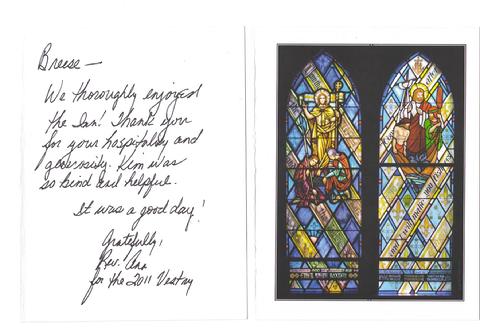 Breese —
We thoroughly enjoyed
the Inn! Thank you
for your hospitality and
generosity. Kim was
so kind and helpful.
It was a good day!
Gratefully,
Rev. Ann
for the 2011 Vestry
will make you